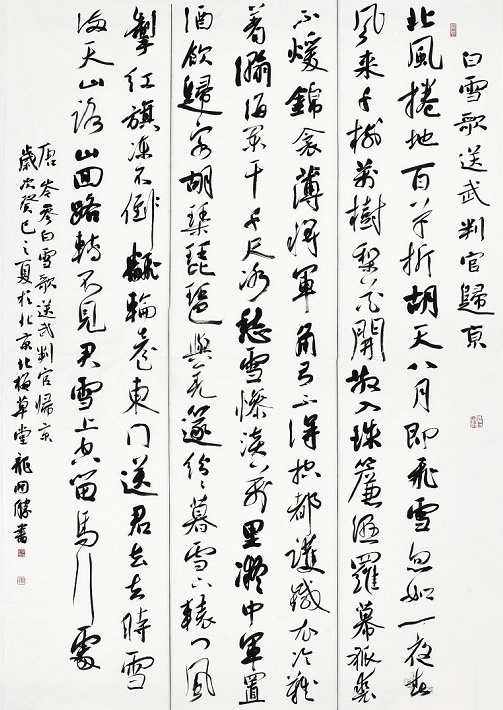 白雪歌送武判官歸京
北風捲地百草折胡天八月即飛雪忽如一夜春
風來千樹萬樹梨花開散入珠簾濕羅幕狐裘
不煖錦衾薄將軍角弓不得控都護鐵衣冷難
着瀚海闌干千尺冰愁雪慘淡萬里凝中軍置
酒飲歸客胡琴琵琶與羌篴紛紛暮雪下轅門風
掣紅旗凍不倒翻輪臺東門送君去去時雪
滿天山路山回路轉不見君雪上空留馬行處
唐岑參白雪歌送武判官歸京
歲次癸巳之夏於北京北極草堂龍開勝書